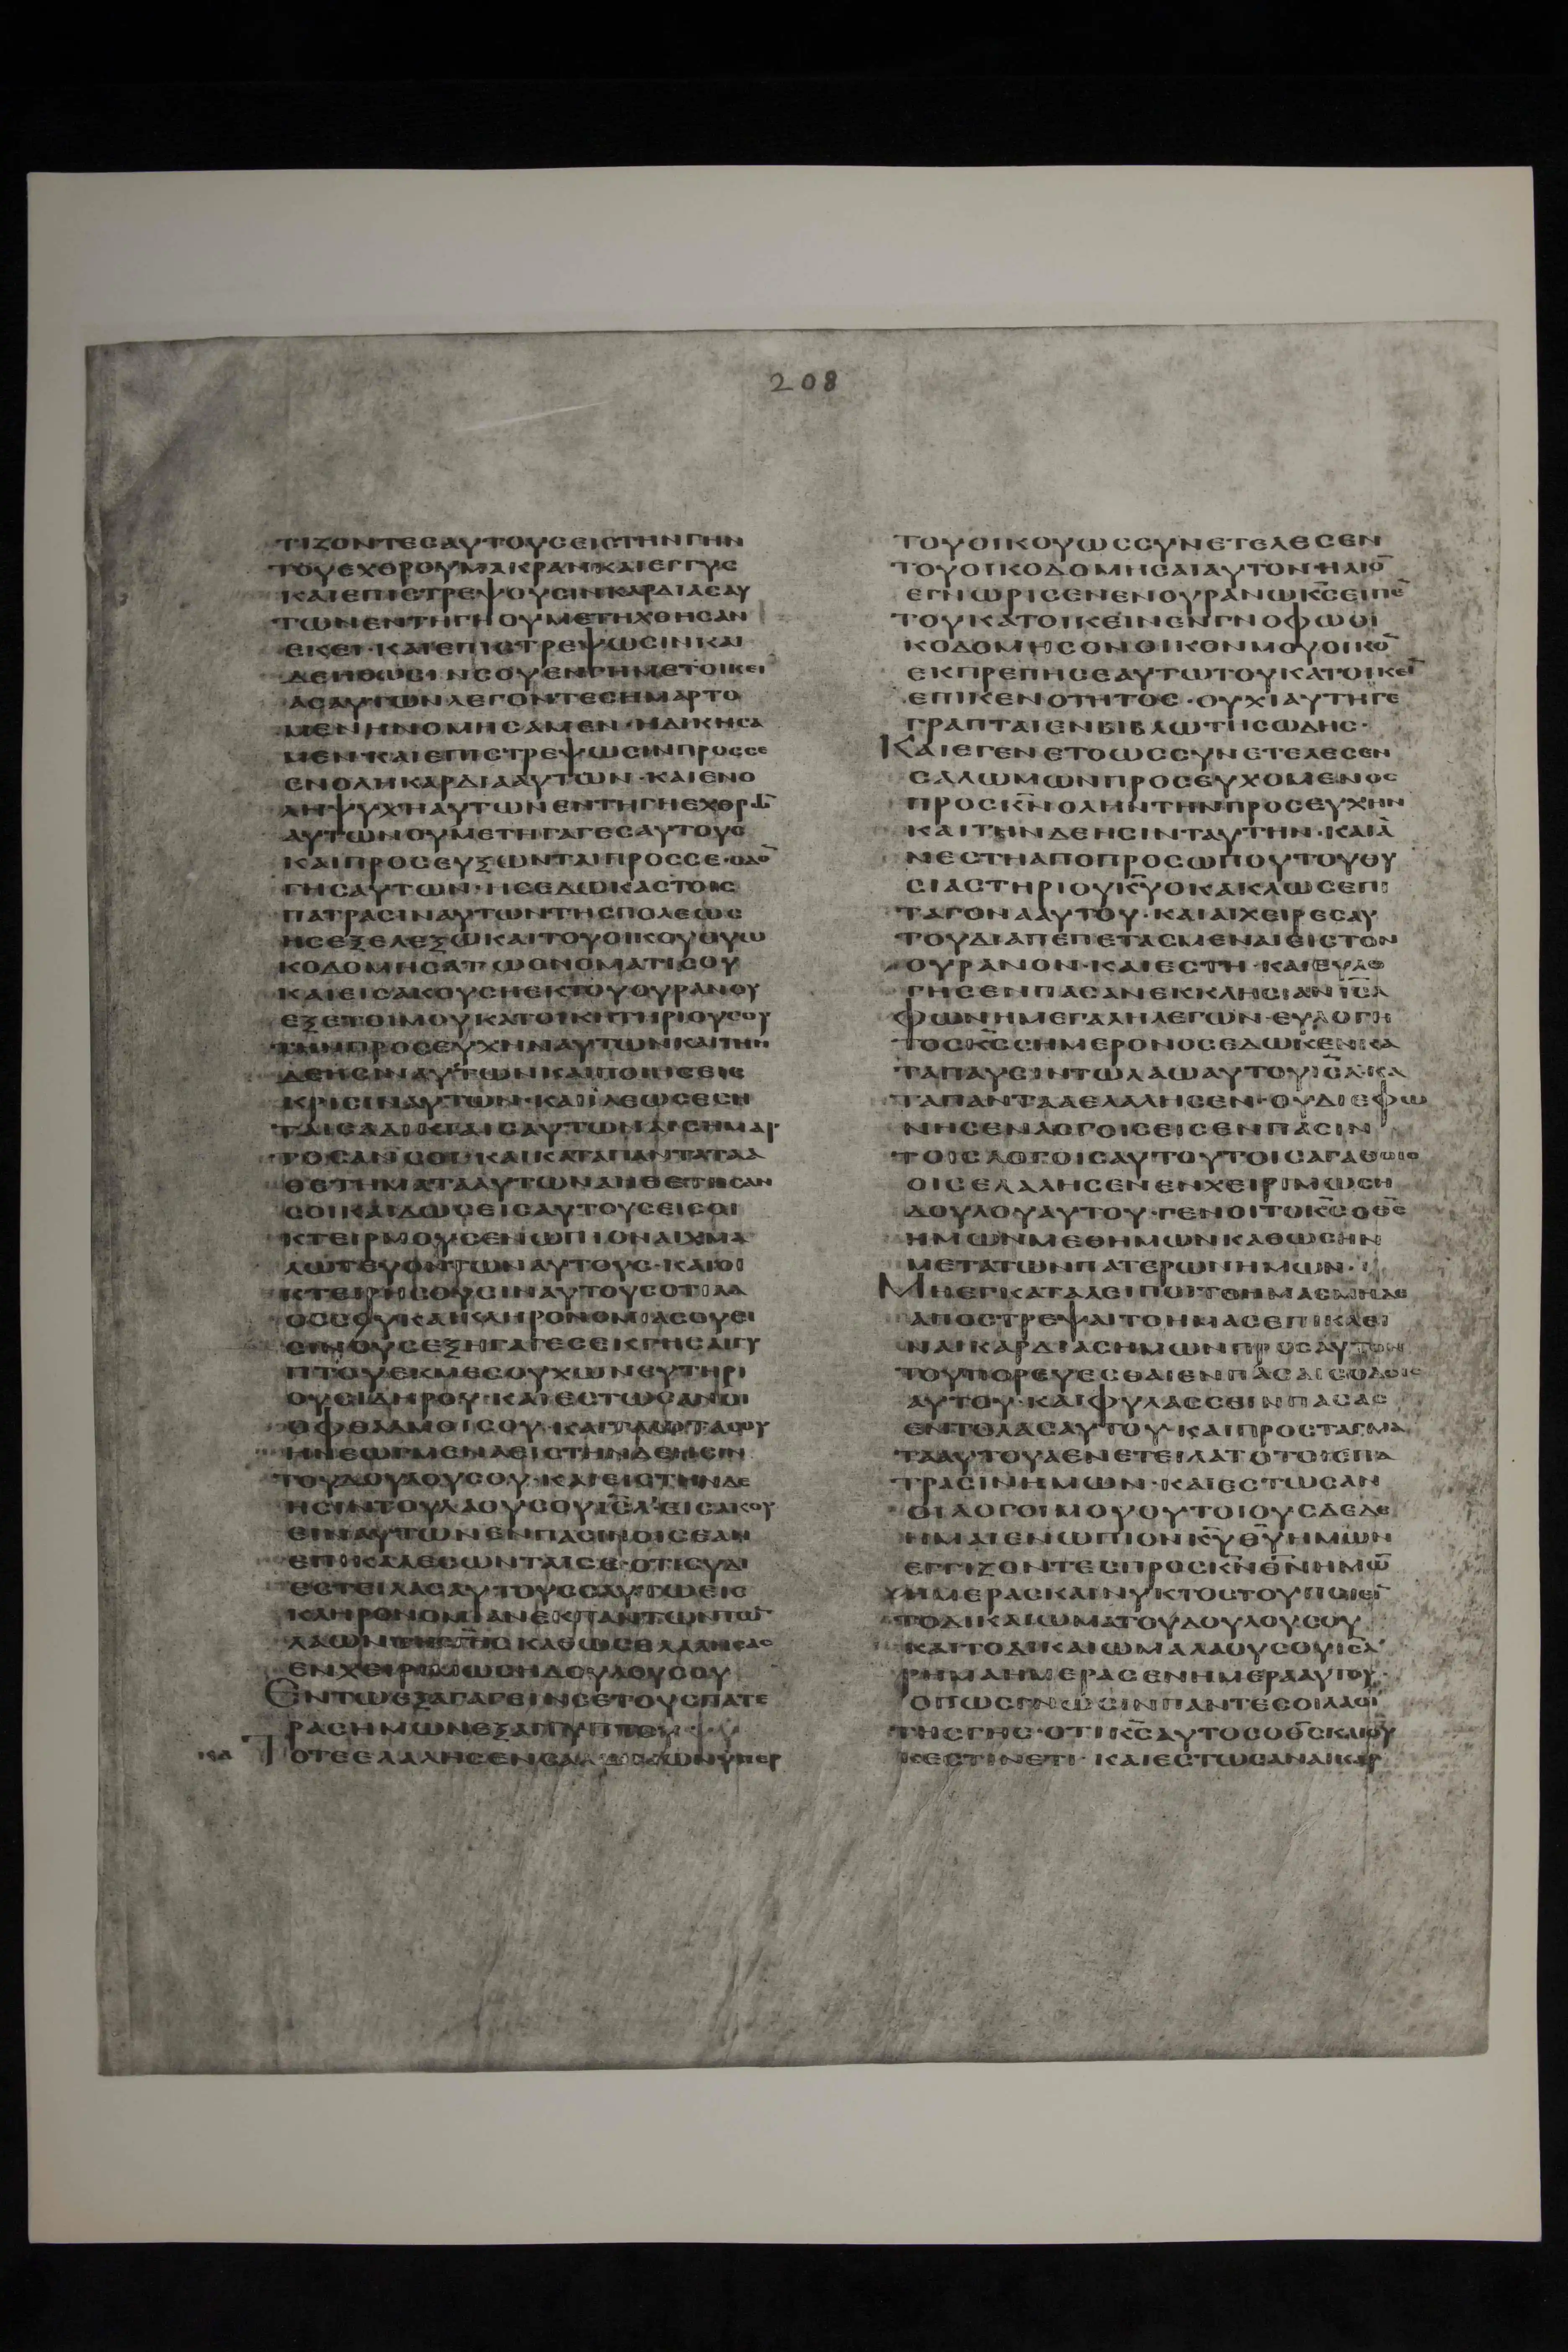 208
ΤΙΖΟΝΤΕCΑΥΤΟΥCΕΙCΤΗΝΓΗΝ
ΤΟΥΕΧΘΡΟΥΜΑΚΡΑΝΚΑΙΕΓΓΥC
ΚΑΙΕΠΙCΤΡΕΨΟΥCΙΝΚΑΡΔΙΑCΑΥ
ΤΩΝΕΝΤΗΓΗΟΥΜΕΤΗΧΘΗCΑΝ
ΕΚΕΙ·ΚΑΙΕΠΙCΤΡΕΨΩCΙΝΚΑΙ
ΔΕΗΘΩCΙΝCΟΥΕΝΓΗΜΕΤΟΙΚΕΙ
ΑCΑΥΤΩΝΛΕΓΟΝΤΕCΗΜΑΡΤΟ
ΜΕΝΗΝΟΜΗCΑΜΕΝ·ΗΔΙΚΗCΑ
ΜΕΝ·ΚΑΙΕΠΙCΤΡΕΨΩCΙΝΠΡΟCCΕ
ΕΝΟΛΗΚΑΡΔΙΑΑΥΤΩΝ·ΚΑΙΕΝΟ
ΛΗΨΥΧΗΑΥΤΩΝΕΝΤΗΓΗΕΧΘΡΩ̅
ΑΥΤΩΝΟΥΜΕΤΗΓΑΓΕCΑΥΤΟΥC
ΚΑΙΠΡΟCΕΥΞΩΝΤΑΙΠΡΟCCΕ·ΟΔΟ̅
ΓΗCΑΥΤΩΝ·ΗCΕΔΩΚΑCΤΟΙC
ΠΑΤΡΑCΙΝΑΥΤΩΝΤΗCΠΟΛΕΩC
ΗCΕΞΕΛΕΞΩΚΑΙΤΟΥΟΙΚΟΥΟΥΩ
ΚΟΔΟΜΗCΑΤΩΟΝΟΜΑΤΙCΟΥ
ΚΑΙΕΙCΑΚΟΥCΗΕΚΤΟΥΟΥΡΑΝΟΥ
ΕΞΕΤΟΙΜΟΥΚΑΤΟΙΚΗΤΗΡΙΟΥCΟΥ
ΤΗΝΠΡΟCΕΥΧΗΝΑΥΤΩΝΚΑΙΤΗΝ
ΔΕΗCΙΝΑΥΤΩΝΚΑΙΠΟΙΗCΕΙC
ΚΡΙCΙΝΑΥΤΩΝ·ΚΑΙΙΛΕΩCΕCΗ
ΤΑΙCΑΔΙΚΙΑΙCΑΥΤΩΝΑΙCΗΜΑΡ
ΤΟCΑΝCΟΙ·ΚΑΙΚΑΤΑΠΑΝΤΑΤΑΑ
ΘΕΤΗΜΑΤΑΑΥΤΩΝΑΗΘΕΤΗCΑΝ
CΟΙΚΑΙΔΩCΕΙCΑΥΤΟΥCΕΙCΟΙ
ΚΤΕΙΡΜΟΥCΕΝΩΠΙΟΝΑΙΧΜΑ
ΛΩΤΕΥΟΝΤΩΝΑΥΤΟΥC·ΚΑΙΟΙ
ΚΤΕΙΡΗCΟΥCΙΝΑΥΤΟΥCΟΤΙΛΑ
ΟCCΟΥΚΑΙΚΛΗΡΟΝΟΜΙΑCΟΥΕΙ
CΙΝΟΥCΕΞΗΓΑΓΕCΕΚΓΗCΑΙΓΥ
ΠΤΟΥΕΚΜΕCΟΥΧΩΝΕΥΤΗΡΙ
ΟΥCΙΔΗΡΟΥ·ΚΑΙΕCΤΩCΑΝΟΙ
ΟΦΘΑΛΜΟΙCΟΥ·ΚΑΙΤΑΩΤΑCΟΥ
ΗΝΕΩΓΜΕΝΑΕΙCΤΗΝΔΕΗCΙΝ
ΤΟΥΔΟΥΛΟΥCΟΥ·ΚΑΙΕΙCΤΗΝΔΕ
ΗCΙΝΤΟΥΛΑΟΥCΟΥΙC̅Λ̅ΕΙCΑΚΟΥ
ΕΙΝΑΥΤΩΝΕΝΠΑCΙΝΟΙCΕΑΝ
ΕΠΙΚΑΛΕCΩΝΤΑΙCΕ·ΟΤΙCΥΔΙ
ΕCΤΕΙΛΑCΑΥΤΟΥCCΑΥΤΩΕΙC
ΚΛΗΡΟΝΟΜΙΑΝΕΚΠΑΝΤΩΝΤΩ̅
ΛΑΩΝΤΗCΓΗCΚΑΘΩCΕΛΑΛΗCΑC
ΕΝΧΕΙΡΙΜΩCΗΔΟΥΛΟΥCΟΥ
ΕΝΤΩΕΞΑΓΑΓΕΙΝCΕΤΟΥCΠΑΤΕ
ΡΑCΗΜΩΝΕΞΑΙΓΥΠΤΟΥ
ΚΑ ΤΟΤΕΕΛΑΛΗCΕΝCΑΛΩΜΩΝΥΠΕΡ
ΤΟΥΟΙΚΟΥΩCCΥΝΕΤΕΛΕCΕΝ
ΤΟΥΟΙΚΟΔΟΜΗCΑΙΑΥΤΟΝ·ΗΛΙΟ̅
ΕΓΝΩΡΙCΕΝΕΝΟΥΡΑΝΩΚ̅C̅ΕΙΠΕ̅
ΤΟΥΚΑΤΟΙΚΕΙΝΕΝΓΝΟΦΩΟΙ
ΚΟΔΟΜΗCΟΝΟΙΚΟΝΜΟΥΟΙΚΟ̅
ΕΚΠΡΕΠΗCΕΑΥΤΩΤΟΥΚΑΤΟΙΚΕΙ̅
ΕΠΙΚΕΝΟΤΗΤΟC·ΟΥΧΙΑΥΤΗΓΕ
ΓΡΑΠΤΑΙΕΝΒΙΒΛΩΤΗCΩΔΗC·
ΚΑΙΕΓΕΝΕΤΟΩCCΥΝΕΤΕΛΕCΕΝ
CΑΛΩΜΩΝΠΡΟCΕΥΧΟΜΕΝΟC
ΠΡΟCΚ̅Ν̅ΟΛΗΝΤΗΝΠΡΟCΕΥΧΗΝ
ΚΑΙΤΗΝΔΕΗCΙΝΤΑΥΤΗΝ·ΚΑΙΑ
ΝΕCΤΗΑΠΟΠΡΟCΩΠΟΥΤΟΥΘΥ
CΙΑCΤΗΡΙΟΥΚ̅Υ̅ΟΚΑΚΛΩCΕΠΙ
ΤΑΓΟΝΑΑΥΤΟΥ·ΚΑΙΑΙΧΕΙΡΕCΑΥ
ΤΟΥΔΙΑΠΕΠΕΤΑCΜΕΝΑΙΕΙCΤΟΝ
ΟΥΡΑΝΟΝ·ΚΑΙΕCΤΗ·ΚΑΙΕΥΛΟ
ΓΗCΕΝΠΑCΑΝΕΚΚΛΗCΙΑΝΙC̅Λ̅
ΦΩΝΗΜΕΓΑΛΗΛΕΓΩΝ·ΕΥΛΟΓΗ
ΤΟCΚ̅C̅CΗΜΕΡΟΝΟCΕΔΩΚΕΝΚΑ
ΤΑΠΑΥCΙΝΤΩΛΑΩΑΥΤΟΥΙC̅Λ̅·ΚΑ
ΤΑΠΑΝΤΑΑΕΛΑΛΗCΕΝ·ΟΥΔΙΕΦΩ
ΝΗCΕΝΛΟΓΟΙCΕΙCΕΝΠΑCΙΝ
ΤΟΙCΛΟΓΟΙCΑΥΤΟΥΤΟΙCΑΓΑΘΟΙC
ΟΙCΕΛΑΛΗCΕΝΕΝΧΕΙΡΙΜΩCΗ
ΔΟΥΛΟΥΑΥΤΟΥ·ΓΕΝΟΙΤΟΚ̅C̅ΟΘ̅C̅
ΗΜΩΝΜΕΘΗΜΩΝΚΑΘΩCΗΝ
ΜΕΤΑΤΩΝΠΑΤΕΡΩΝΗΜΩΝ·
ΜΗΕΓΚΑΤΑΛΕΙΠΟΙΤΟΗΜΑCΜΗΔΕ
ΑΠΟCΤΡΕΨΑΙΤΟΗΜΑCΕΠΙΚΛΕΙ
ΝΑΙΚΑΡΔΙΑCΗΜΩΝΠΡΟCΑΥΤΟΝ
ΤΟΥΠΟΡΕΥΕCΘΑΙΕΝΠΑCΑΙCΟΔΟΙC
ΑΥΤΟΥ·ΚΑΙΦΥΛΑCCΕΙΝΠΑCΑC
ΕΝΤΟΛΑCΑΥΤΟΥ·ΚΑΙΠΡΟCΤΑΓΜΑ
ΤΑΑΥΤΟΥΑΕΝΕΤΕΙΛΑΤΟΤΟΙCΠΑ
ΤΡΑCΙΝΗΜΩΝ·ΚΑΙΕCΤΩCΑΝ
ΟΙΛΟΓΟΙΜΟΥΟΥΤΟΙΟΥCΔΕΔΕ
ΗΜΑΙΕΝΩΠΙΟΝΚ̅Υ̅Θ̅Υ̅ΗΜΩΝ
ΕΓΓΙΖΟΝΤΕCΠΡΟCΚ̅Ν̅Θ̅Ν̅ΗΜΩ̅
ΗΜΕΡΑCΚΑΙΝΥΚΤΟCΤΟΥΠΟΙΕΙ̅
ΤΟΔΙΚΑΙΩΜΑΤΟΥΔΟΥΛΟΥCΟΥ
ΚΑΙΤΟΔΙΚΑΙΩΜΑΛΑΟΥCΟΥΙC̅Λ̅
ΡΗΜΑΗΜΕΡΑCΕΝΗΜΕΡΑΑΥΤΟΥ·
ΟΠΩCΓΝΩCΙΝΠΑΝΤΕCΟΙΛΑΟΙ
ΤΗCΓΗC·ΟΤΙΚ̅C̅ΑΥΤΟCΟΘ̅C̅ΚΑΙΟΥ
ΚΕCΤΙΝΕΤΙ·ΚΑΙΕCΤΩCΑΝΑΙΚΑΡ